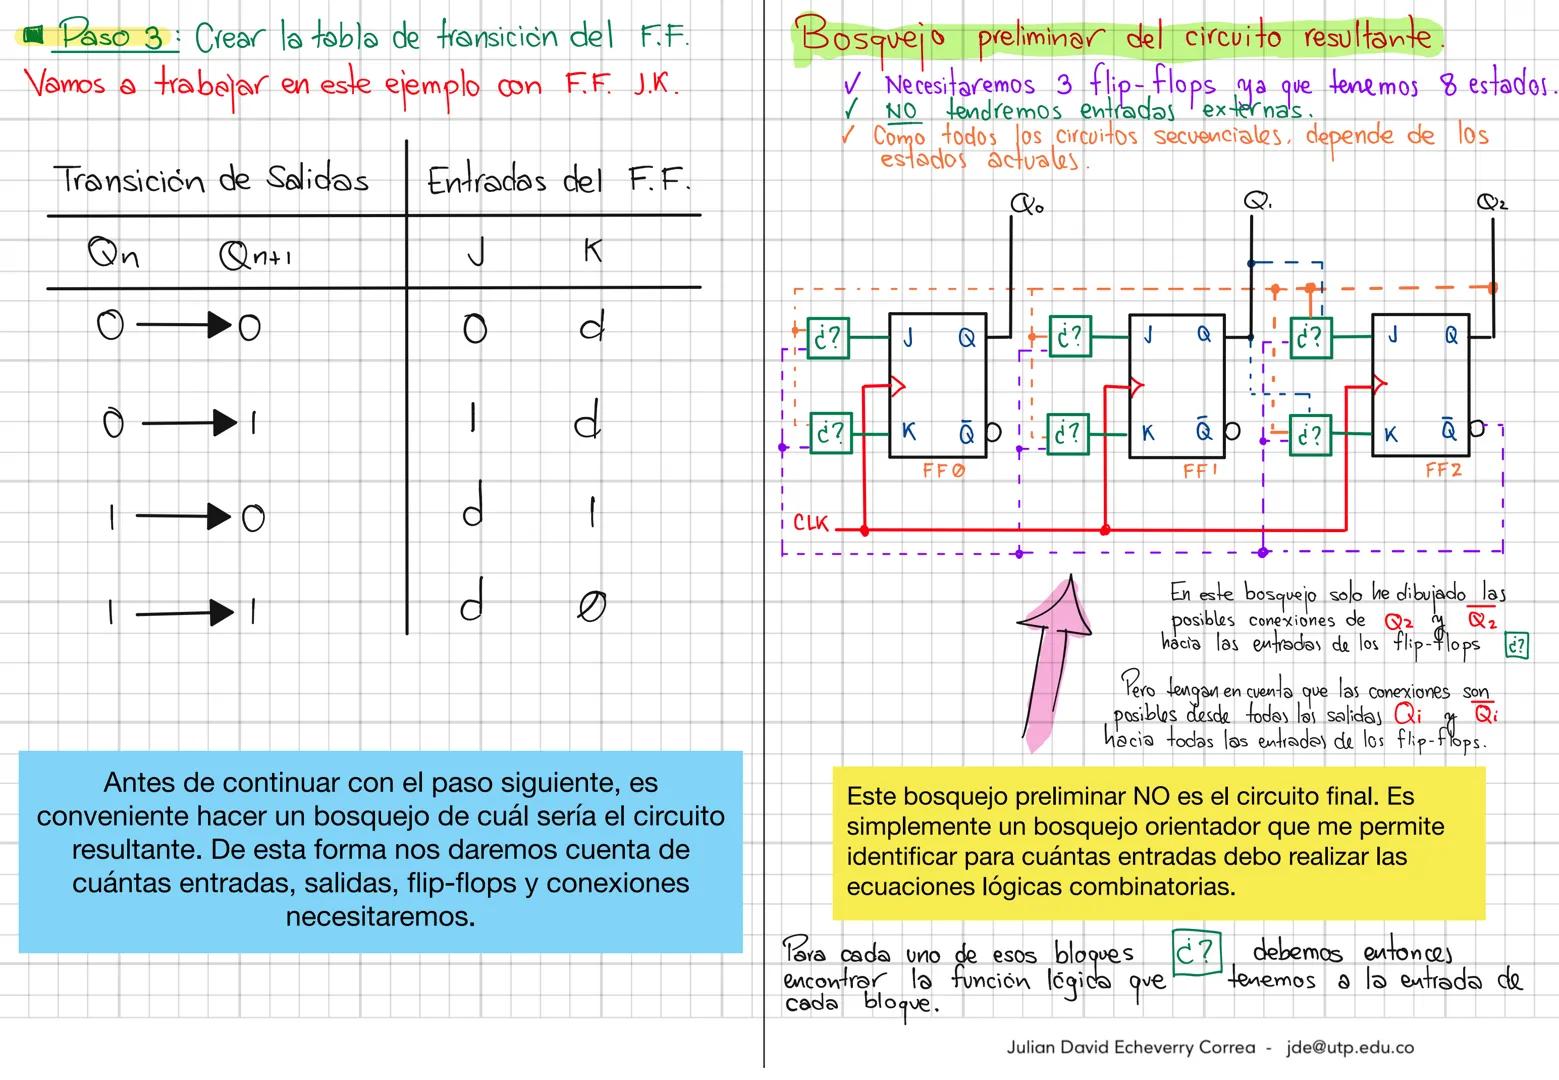 Paso 3: Crear la tabla de transición del F.F.
Vamos a trabajar en este ejemplo con F.F. J.K.
Transición de Salidas Entradas del F.F.
Qn Qn+1 J K
0 → 0 0 d
0 → 1 1 d
1 → 0 d 1
1 → 1 d 0
Antes de continuar con el paso siguiente, es
conveniente hacer un bosquejo de cuál sería el circuito
resultante. De esta forma nos daremos cuenta de
cuántas entradas, salidas, flip-flops y conexiones
necesitaremos.
Bosquejo preliminar del circuito resultante.
✓ Necesitaremos 3 flip-flops ya que tenemos 8 estados.
✓ NO tendremos entradas externas.
✓ Como todos los circuitos secuenciales, depende de los
estados actuales.
Q0 Q1 Q2
¿? J Q ¿? J Q ¿? J Q
¿? K Q̅ ¿? K Q̅ ¿? K Q̅
FF0 FF1 FF2
CLK
En este bosquejo solo he dibujado las
posibles conexiones de Q2 y Q̅2
hacia las entradas de los flip-flops ¿?
Pero tengan en cuenta que las conexiones son
posibles desde todas las salidas Qi y Q̅i
hacia todas las entradas de los flip-flops.
Este bosquejo preliminar NO es el circuito final. Es
simplemente un bosquejo orientador que me permite
identificar para cuántas entradas debo realizar las
ecuaciones lógicas combinatorias.
Para cada uno de esos bloques ¿? debemos entonces
encontrar la función lógica que tenemos a la entrada de
cada bloque.
Julian David Echeverry Correa - jde@utp.edu.co